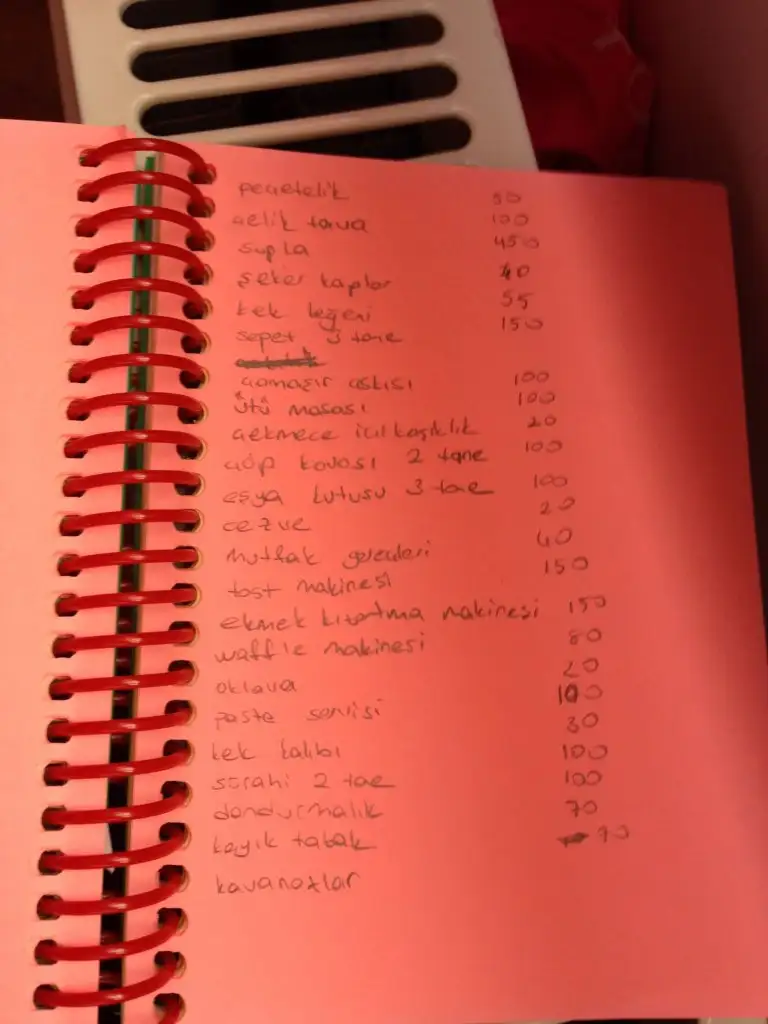 peçetelik 50
çelik tava 100
supla 450
şeker kaplar 40
kek leğeni 55
sepet 3 tane 150
çamaşır askısı 100
ütü masası 100
çekmece içi kaşıklık 20
çöp kovası 2 tane 100
eşya kutusu 3 tae 100
cezve 20
mutfak gereçleri 40
tost makinesi 150
ekmek kızartma makinesi 150
waffle makinesi 80
oklava 20
paste servisi 100
kek kalıbı 30
sürahi 2 tae 100
dondurmalık 100
kayık tabak 70
kavanozlar 90